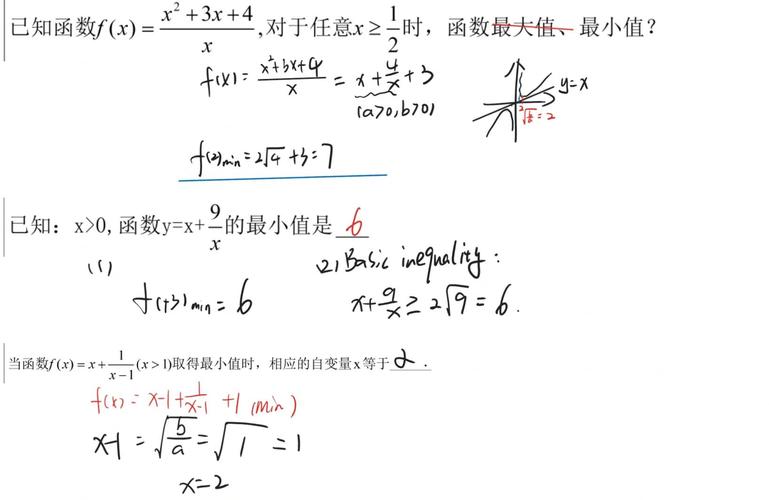 已知函数f(x)=\frac{x^2+3x+4}{x},对于任意x≥\frac{1}{2}时，函数最大值、最小值？
f(x)=\frac{x^2+3x+4}{x}=x+\frac{4}{x}+3
(a>0,b>0)
y=x
=2
f(2)min=2√4+3=7
已知：x>0,函数y=x+\frac{9}{x}的最小值是 6
(1)
f(+3)min=6
(2) Basic inequality:
x+\frac{9}{x}≥2√9=6.
当函数f(x)=x+\frac{1}{x-1}(x>1)取得最小值时，相应的自变量x等于 2 .
f(x)=x-1+\frac{1}{x-1}+1 (min)
x-1=√\frac{b}{a}=√1=1
x=2